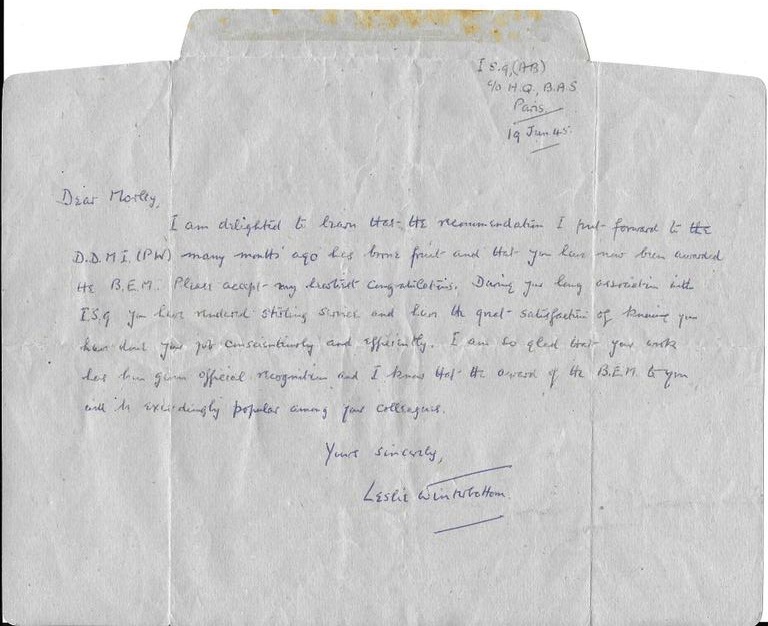 I S.9,(AB)
c/o H.Q., B.A.S
Paris.
19 Jun 45.
Dear Morley,
I am delighted to learn that the recommendation I put forward to the
D.D.M.I.(PW) many months' ago has borne fruit and that you have now been awarded
the B.E.M. Please accept my heartiest congratulations. During your long association with
I.S.9 you have rendered stirling service and have the great satisfaction of knowing you
have done your job conscientiously and efficiently. I am so glad that your work
has been given official recognition and I know that the award of the B.E.M. to you
will be exceedingly popular among your colleagues.
Yours sincerely,
Leslie Winterbottom.